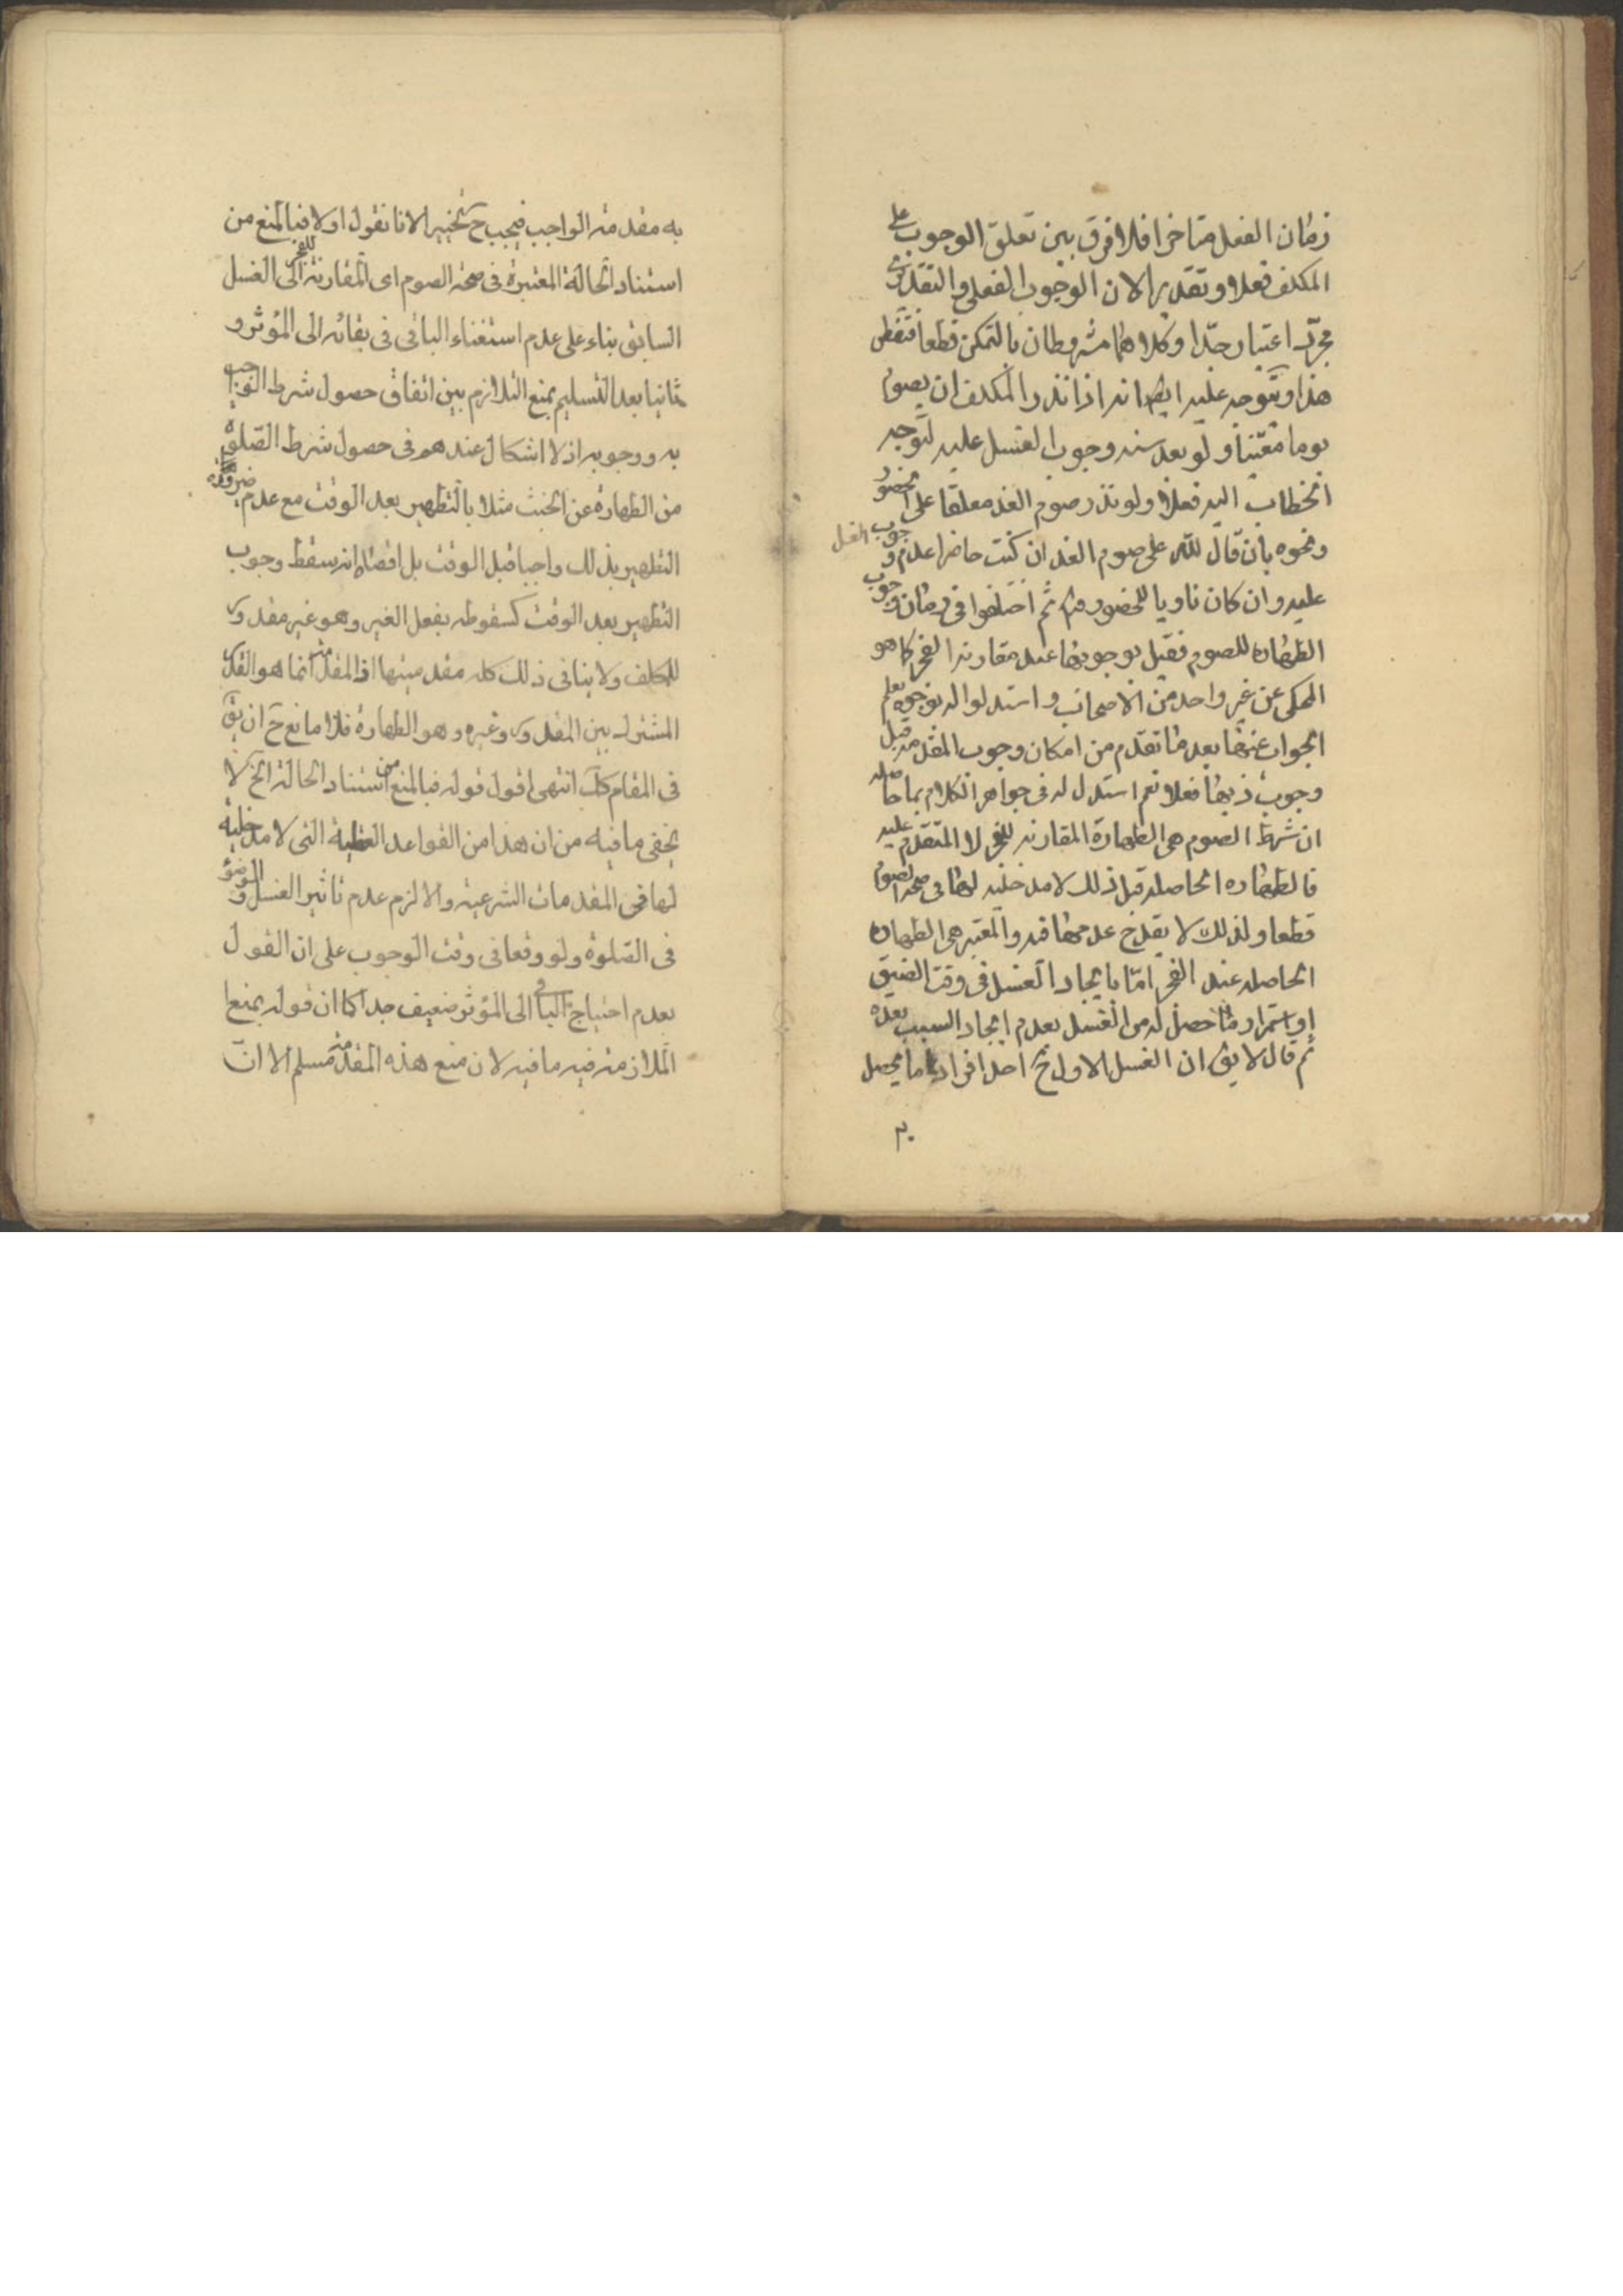 زمان الفعل متاخرا فلا فرق بين تعلق الوجوب على
المكلف فعلا وتقديرا لان الوجوب الفعلى والتقديرى
مجرد اعتبار جدا وكلاهما مشروطان بالتمكن قطعا فتفطن
هذا ويتوجه عليه ايضا انه اذا نذر المكلف ان يصوم
يوما معينا ولو بعد سنه وجوب الغسل عليه لتوجه
الخطاب اليه فعلا ولو نذر صوم الغد معلقا على الحضور
ونحوه بان قال لله على صوم الغد ان كنت حاضرا عدم وجوب الغسل
عليه وان كان ناويا للحضور ثم اختلفوا فى زمان وجوب
الطهاره للصوم فقيل بوجوبها عند مقاربه الفجر كما هو
المحكى عن غير واحد من الاصحاب واستدلوا له بوجوه يعلم
الجواب عنها بعد ما تقدم من امكان وجوب المقدمه قبل
وجوب ذيها فعلا نعم استدل له فى جواهر الكلام بما حاصله
ان شرط الصوم هى الطهارة المقارنه للفجر لا المتقدم عليه
فالطهاره الحاصله قبل ذلك لا مدخليه لها فى صحه الصوم
قطعا ولذلك لا يقدح عدمها فيه والمعتبر هى الطهاره
الحاصله عند الفجر اما بايجاد الغسل فى وقت الضيق
او استمرار ما حصل له من الغسل بعدم ايجاد السبب بعده
ثم قال لا يق ان الغسل الاول ح احد افراد ما يحصل
به مقدمة الواجب فيجب ح تخييرا لانا نقول اولا فبالمنع من
استناد الحالة المعتبرة فى صحة الصوم اى المقارنة للفجر الى الغسل
السابق بناء على عدم استغناء الباقى فى بقائه الى المؤثر و
ثانيا بعد التسليم بمنع التلازم بين اتفاق حصول شرط الواجب
به ووجوبه اذ لا اشكال عندهم فى حصول شرط الصلوة
من الطهارة عن الخبث مثلا بالتطهير بعد الوقت مع عدم ضرورة
التطهير بذلك واجبا قبل الوقت بل اقصاه انه سقط وجوب
التطهير بعد الوقت كسقوطه بفعل الغير وهو غير مقدور
للمكلف ولا ينافى ذلك كله مقدميتها اذ المقدمة انما هو القدر
المشترك بين المقدور وغيره وهو الطهارة فلا مانع ح ان يق
فى المقام كك انتهى اقول قوله فبالمنع من استناد الحالة الخ لا
يخفى ما فيه من ان هذا من القواعد العقلية التى لا مدخلية
لها فى المقدمات الشرعية والا لزم عدم تاثير الغسل والوضوء
فى الصلوة ولو وقعا فى وقت الوجوب على ان القول
بعدم احتياج الباقى الى المؤثر ضعيف جدا كما ان قوله بمنع
الملازمة فيه ما فيه لان منع هذه المقدمة مسلم الا ان